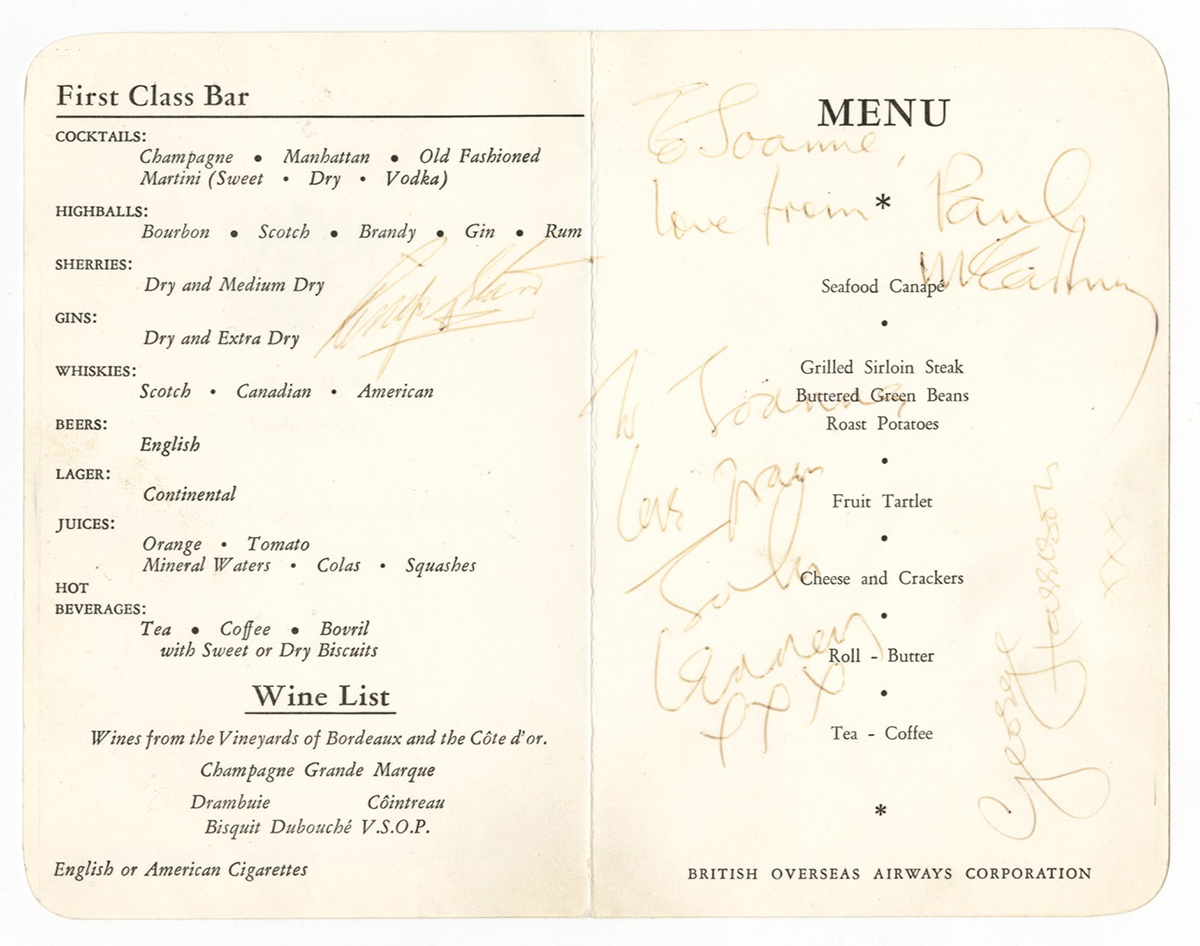 First Class Bar
COCKTAILS:
Champagne • Manhattan • Old Fashioned
Martini (Sweet • Dry • Vodka)
HIGHBALLS:
Bourbon • Scotch • Brandy • Gin • Rum
SHERRIES:
Dry and Medium Dry
Ringo Starr
GINS:
Dry and Extra Dry
WHISKIES:
Scotch • Canadian • American
BEERS:
English
LAGER:
Continental
JUICES:
Orange • Tomato
Mineral Waters • Colas • Squashes
HOT
BEVERAGES:
Tea • Coffee • Bovril
with Sweet or Dry Biscuits
Wine List
Wines from the Vineyards of Bordeaux and the Côte d'or.
Champagne Grande Marque
Drambuie Côintreau
Bisquit Dubouché V.S.O.P.
English or American Cigarettes
MENU
To Joanne,
love from Paul
McCartney
*
Seafood Canapé
•
Grilled Sirloin Steak
Buttered Green Beans
Roast Potatoes
•
Fruit Tartlet
•
Cheese and Crackers
•
Roll - Butter
•
Tea - Coffee
*
To Joanne,
love from
John
Lennon
xxx
George Harrison
xxx
BRITISH OVERSEAS AIRWAYS CORPORATION